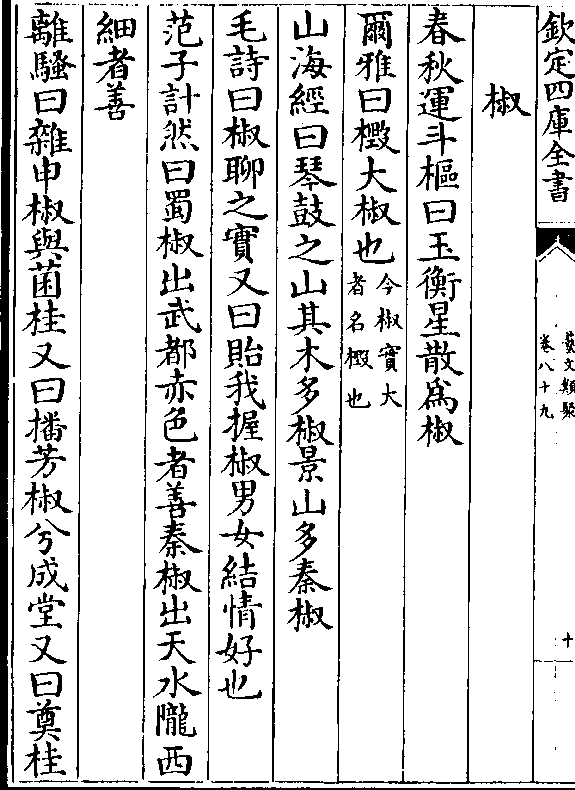 欽定四庫全書
藝文類聚
卷八十九
十
椒
春秋運斗樞曰玉衡星散爲椒
爾雅曰檓大椒也今椒實大者名檓也
山海經曰琴鼓之山其木多椒景山多秦椒
毛詩曰椒聊之實又曰貽我握椒男女結情好也
范子計然曰蜀椒出武都赤色者善秦椒出天水隴西
細者善
離騷曰雜申椒與菌桂又曰播芳椒兮成堂又曰奠桂